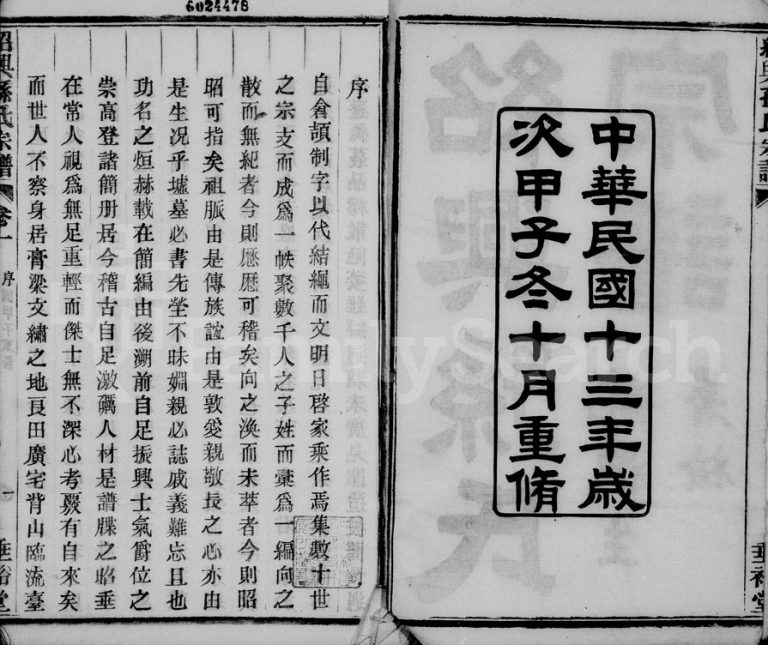 6024478
中華民國十三年歲
次甲子冬十月重脩
垂裕堂
序
自倉頡制字以代結繩而文明日啓家乘作焉集數十世
之宗支而成爲一帙聚數千人之子姓而彙爲一編向之
散而無紀者今則歷歷可稽矣向之渙而未萃者今則昭
昭可指矣祖脈由是傳族誼由是敦愛親敬長之心亦由
是生况乎墟墓必書先塋不昧婣親必誌戚義難忘且也
功名之烜赫載在簡編由後溯前自足振興士氣爵位之
崇高登諸簡册居今稽古自足激礪人材是譜牒之昭垂
在常人視爲無足重輕而傑士無不深心考覈有自來矣
而世人不察身居膏粱文繡之地良田廣宅背山臨流臺
紹興孫氏宗譜
卷一
序
一
垂裕堂
FamilySearch